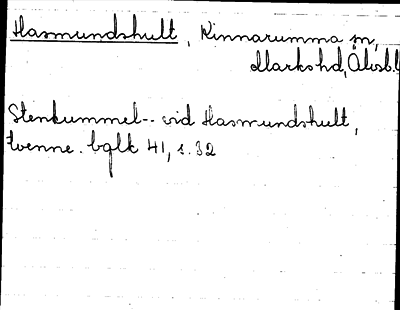 Hasmundshult, Kinnarumma sn,
Marks hd, Älvsb.l
Stenkummel-- vid Hasmundshult,
tvenne. bglk 41, s. 32